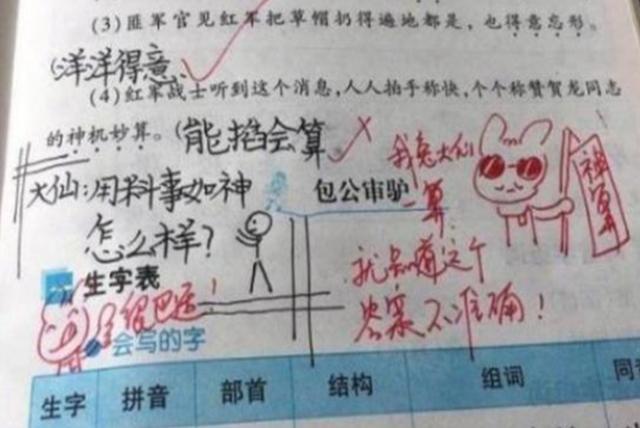 (3) 匪军官见红军把草帽扔得遍地都是,也得意忘形。
(洋洋得意)
(4) 红军战士听到这个消息,人人拍手称快,个个称赞贺龙同志
的神机妙算。(能掐会算)
大仙:用料事如神
怎么样?
包公审驴
我兔大仙
一算,
就知道这个
答案不准确!
神算
生字表
会写的字
生字 拼音 部首 结构 组词